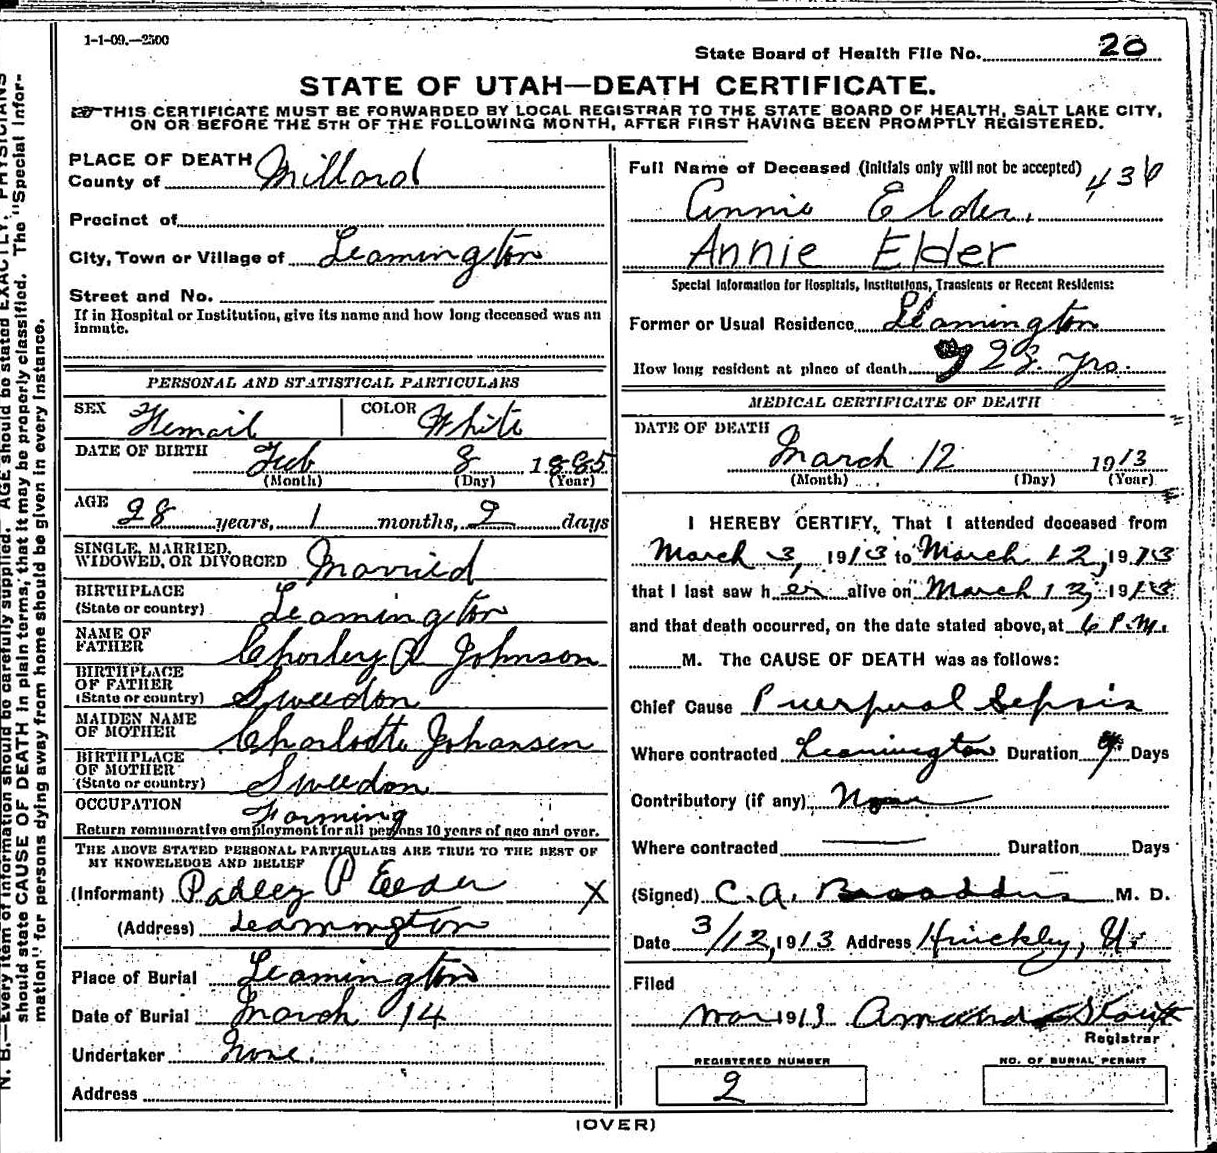 1-1-09.—2500
State Board of Health File No. 20
STATE OF UTAH—DEATH CERTIFICATE.
THIS CERTIFICATE MUST BE FORWARDED BY LOCAL REGISTRAR TO THE STATE BOARD OF HEALTH, SALT LAKE CITY,
ON OR BEFORE THE 5TH OF THE FOLLOWING MONTH, AFTER FIRST HAVING BEEN PROMPTLY REGISTERED.
PLACE OF DEATH
County of Millard
Precinct of
City, Town or Village of Leamington
Street and No.
If in Hospital or Institution, give its name and how long deceased was an
inmate.
PERSONAL AND STATISTICAL PARTICULARS
SEX Femail COLOR White
DATE OF BIRTH Feb 8 1885
(Month) (Day) (Year)
AGE 28 years, 1 months, 2 days
SINGLE, MARRIED,
WIDOWED, OR DIVORCED Married
BIRTHPLACE
(State or country) Leamington
NAME OF
FATHER Charley P Johnson
BIRTHPLACE
OF FATHER
(State or country) Sweedon
MAIDEN NAME
OF MOTHER Charlotte Johansen
BIRTHPLACE
OF MOTHER
(State or country) Sweedon
OCCUPATION Farming
Return remunerative employment for all persons 10 years of age and over.
THE ABOVE STATED PERSONAL PARTICULARS ARE TRUE TO THE BEST OF
MY KNOWLEDGE AND BELIEF
(Informant) P Elder X
(Address) Leamington
Place of Burial Leamington
Date of Burial March 14
Undertaker None.
Address
Full Name of Deceased (Initials only will not be accepted) 436
Annie Elder.
Annie Elder
Special Information for Hospitals, Institutions, Transients or Recent Residents:
Former or Usual Residence Leamington
How long resident at place of death 28 yrs.
MEDICAL CERTIFICATE OF DEATH
DATE OF DEATH
March 12 1913
(Month) (Day) (Year)
I HEREBY CERTIFY, That I attended deceased from
March 3, 1913 to March 12, 1913
that I last saw her alive on March 12, 1913
and that death occurred, on the date stated above, at 6 P.M.
M. The CAUSE OF DEATH was as follows:
Chief Cause Puerperal Sepsis
Where contracted Leamington Duration 9 Days
Contributory (if any) None
Where contracted — Duration Days
(Signed) C. A. Broaddus M. D.
Date 3/12, 1913 Address Hinckley, U.
Filed
Mar 1913 Stout
Registrar
REGISTERED NUMBER
2
NO. OF BURIAL PERMIT
(OVER)
N. B.—Every item of information should be carefully supplied. AGE should be stated EXACTLY. PHYSICIANS
should state CAUSE OF DEATH in plain terms, that it may be properly classified. The "Special Infor-
mation" for persons dying away from home should be given in every instance.